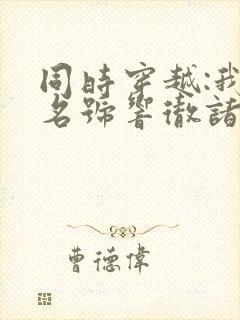 同時穿越:我
名號響徹諸
曹德偉